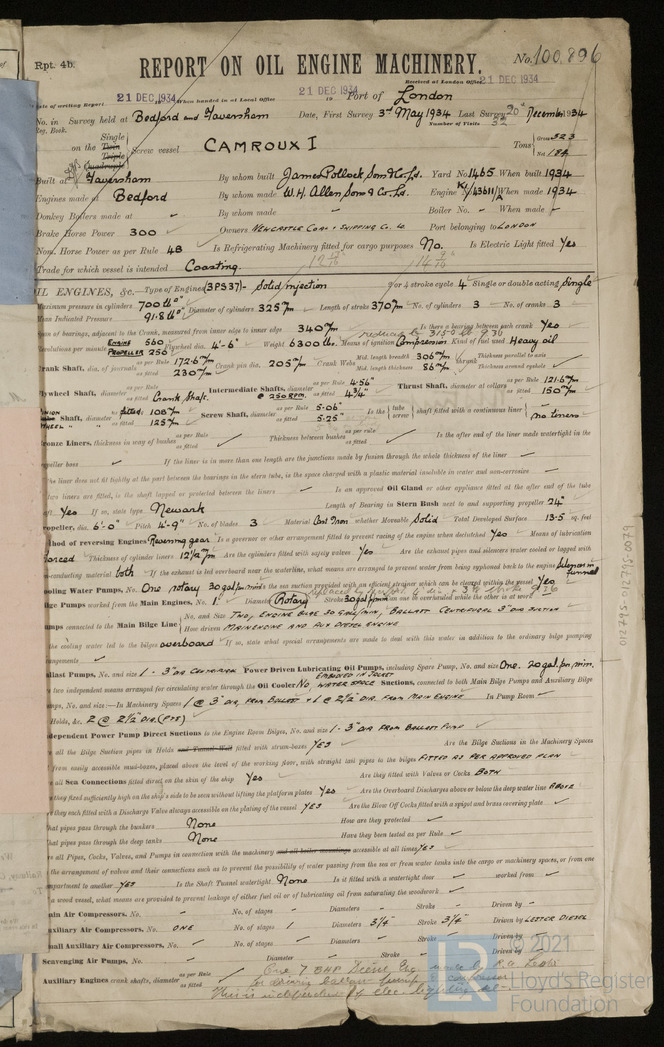 Rpt. 4b.
REPORT ON OIL ENGINE MACHINERY.
No. 100,896
Received at London Office 21 DEC 1934
Date of writing Report 21 DEC 1934 When handed in at Local Office 21 DEC 1934 Port of London
No. in Survey held at Bedford and Faversham Date, First Survey 3rd May 1934 Last Survey 20th December 1934
Reg. Book. Number of Visits 32
on the Single Twin Triple Quadruple Screw vessel CAMROUX I Tons Gross 323 Net 184
Built at Faversham By whom built James Pollock, Sons & Co. Ld. Yard No. 1465 When built 1934
Engines made at Bedford By whom made W.H. Allen Sons & Co. Ld. Engine No. When made 1934
Donkey Boilers made at - By whom made - Boiler No. - When made -
Brake Horse Power 300 Owners Newcastle Coal & Shipping Co. Ld Port belonging to London
Nom. Horse Power as per Rule 48 Is Refrigerating Machinery fitted for cargo purposes No. Is Electric Light fitted Yes
Trade for which vessel is intended Coasting.
OIL ENGINES, &c. Type of Engines (3PS37) - Solid injection 2 or 4 stroke cycle 4 Single or double acting Single
Maximum pressure in cylinders 700 lb Diameter of cylinders 325 m/m Length of stroke 370 m/m No. of cylinders 3 No. of cranks 3
Mean Indicated Pressure 91.8 lb
Span of bearings, adjacent to the Crank, measured from inner edge to inner edge 340 m/m Is there a bearing between each crank Yes
Revolutions per minute ENGINE 560 PROPELLER 256 Flywheel dia. 4'-6" Weight 6300 lbs. Means of ignition Compression Kind of fuel used Heavy oil
Crank Shaft, dia. of journals as per Rule 172.6 m/m as fitted 230 m/m Crank pin dia. 205 m/m Crank Webs Mid. length breadth 306 m/m Mid. length thickness 86 m/m shrunk Thickness parallel to axis Thickness around eyehole
Flywheel Shaft, diameter as per Rule as fitted Crank Shaft. Intermediate Shafts, diameter @ 250 RPM. as per Rule 4.56" as fitted 4¾" Thrust Shaft, diameter at collars as per Rule 121.6 m/m as fitted 150 m/m
Shaft, diameter 108 m/m 125 m/m Screw Shaft, diameter as per Rule 5.06" as fitted 5.25" Is the tube screw shaft fitted with a continuous liner no liners
Bronze Liners, thickness in way of bushes as per Rule as fitted Thickness between bushes as per rule as fitted Is the after end of the liner made watertight in the
propeller boss If the liner is in more than one length are the junctions made by fusion through the whole thickness of the liner
the liner does not fit tightly at the part between the bearings in the stern tube, is the space charged with a plastic material insoluble in water and non-corrosive
two liners are fitted, is the shaft lapped or protected between the liners Is an approved Oil Gland or other appliance fitted at the after end of the tube
shaft Yes If so, state type Newark Length of Bearing in Stern Bush next to and supporting propeller 24"
Propeller, dia. 6'-0" Pitch 4'-9" No. of blades 3 Material Cast Iron whether Moveable Solid Total Developed Surface 13.5 sq. feet
Method of reversing Engines Reversing gear Is a governor or other arrangement fitted to prevent racing of the engine when declutched Yes Means of lubrication
forced Thickness of cylinder liners 12½ m/m Are the cylinders fitted with safety valves Yes Are the exhaust pipes and silencers water cooled or lagged with
non-conducting material both If the exhaust is led overboard near the waterline, what means are arranged to prevent water from being syphoned back to the engine silencer in funnel
Cooling Water Pumps, No. One rotary 30 gal/min Is the sea suction provided with an efficient strainer which can be cleared within the vessel Yes
Bilge Pumps worked from the Main Engines, No. 1 Diameter Rotary Stroke 30 gal/min Can one be overhauled while the other is at work
Pumps connected to the Main Bilge Line No. and Size Two, Engine Bilge 30 gall/min, Ballast Centrifugal 3" dia suction
How driven Main engine and aux diesel engine
the cooling water led to the bilges overboard If so, state what special arrangements are made to deal with this water in addition to the ordinary bilge pumping
arrangements
Ballast Pumps, No. and size 1 - 3" dia Centrifugal Power Driven Lubricating Oil Pumps, including Spare Pump, No. and size One. 20 gal. per min.
two independent means arranged for circulating water through the Oil Cooler No, embodied in jacket water space Suctions, connected to both Main Bilge Pumps and Auxiliary Bilge
Pumps, No. and size:—In Machinery Spaces 1 @ 3" dia, from ballast + 1 @ 2½" dia. from main engine In Pump Room -
Holds, &c. 2 @ 2½ dia. (P+S)
Independent Power Pump Direct Suctions to the Engine Room Bilges, No. and size 1 - 3" dia from Ballast Pump
all the Bilge Suction pipes in Holds and Tunnel Well fitted with strum-boxes Yes Are the Bilge Suctions in the Machinery Spaces
from easily accessible mud-boxes, placed above the level of the working floor, with straight tail pipes to the bilges Fitted as per approved plan
all Sea Connections fitted direct on the skin of the ship Yes Are they fitted with Valves or Cocks Both
they fixed sufficiently high on the ship's side to be seen without lifting the platform plates Yes Are the Overboard Discharges above or below the deep water line Above
they each fitted with a Discharge Valve always accessible on the plating of the vessel Yes Are the Blow Off Cocks fitted with a spigot and brass covering plate
What pipes pass through the bunkers None How are they protected
What pipes pass through the deep tanks None Have they been tested as per Rule
all Pipes, Cocks, Valves, and Pumps in connection with the machinery and all boiler mountings accessible at all times Yes
arrangement of valves and their connections such as to prevent the possibility of water passing from the sea or from water tanks into the cargo or machinery spaces, or from one
compartment to another Yes Is the Shaft Tunnel watertight None Is it fitted with a watertight door worked from
a wood vessel, what means are provided to prevent leakage of either fuel oil or of lubricating oil from saturating the woodwork
Main Air Compressors, No. No. of stages Diameters Stroke Driven by
Auxiliary Air Compressors, No. One No. of stages 1 Diameters 3¼" Stroke 3¼" Driven by Lester Diesel
Small Auxiliary Air Compressors, No. No. of stages Diameters Stroke Driven by
Scavenging Air Pumps, No. Diameter Stroke Driven by
Auxiliary Engines crank shafts, diameter as per Rule as fitted
012795-012795-0079
© 2021
LR
Lloyd's Register
Foundation